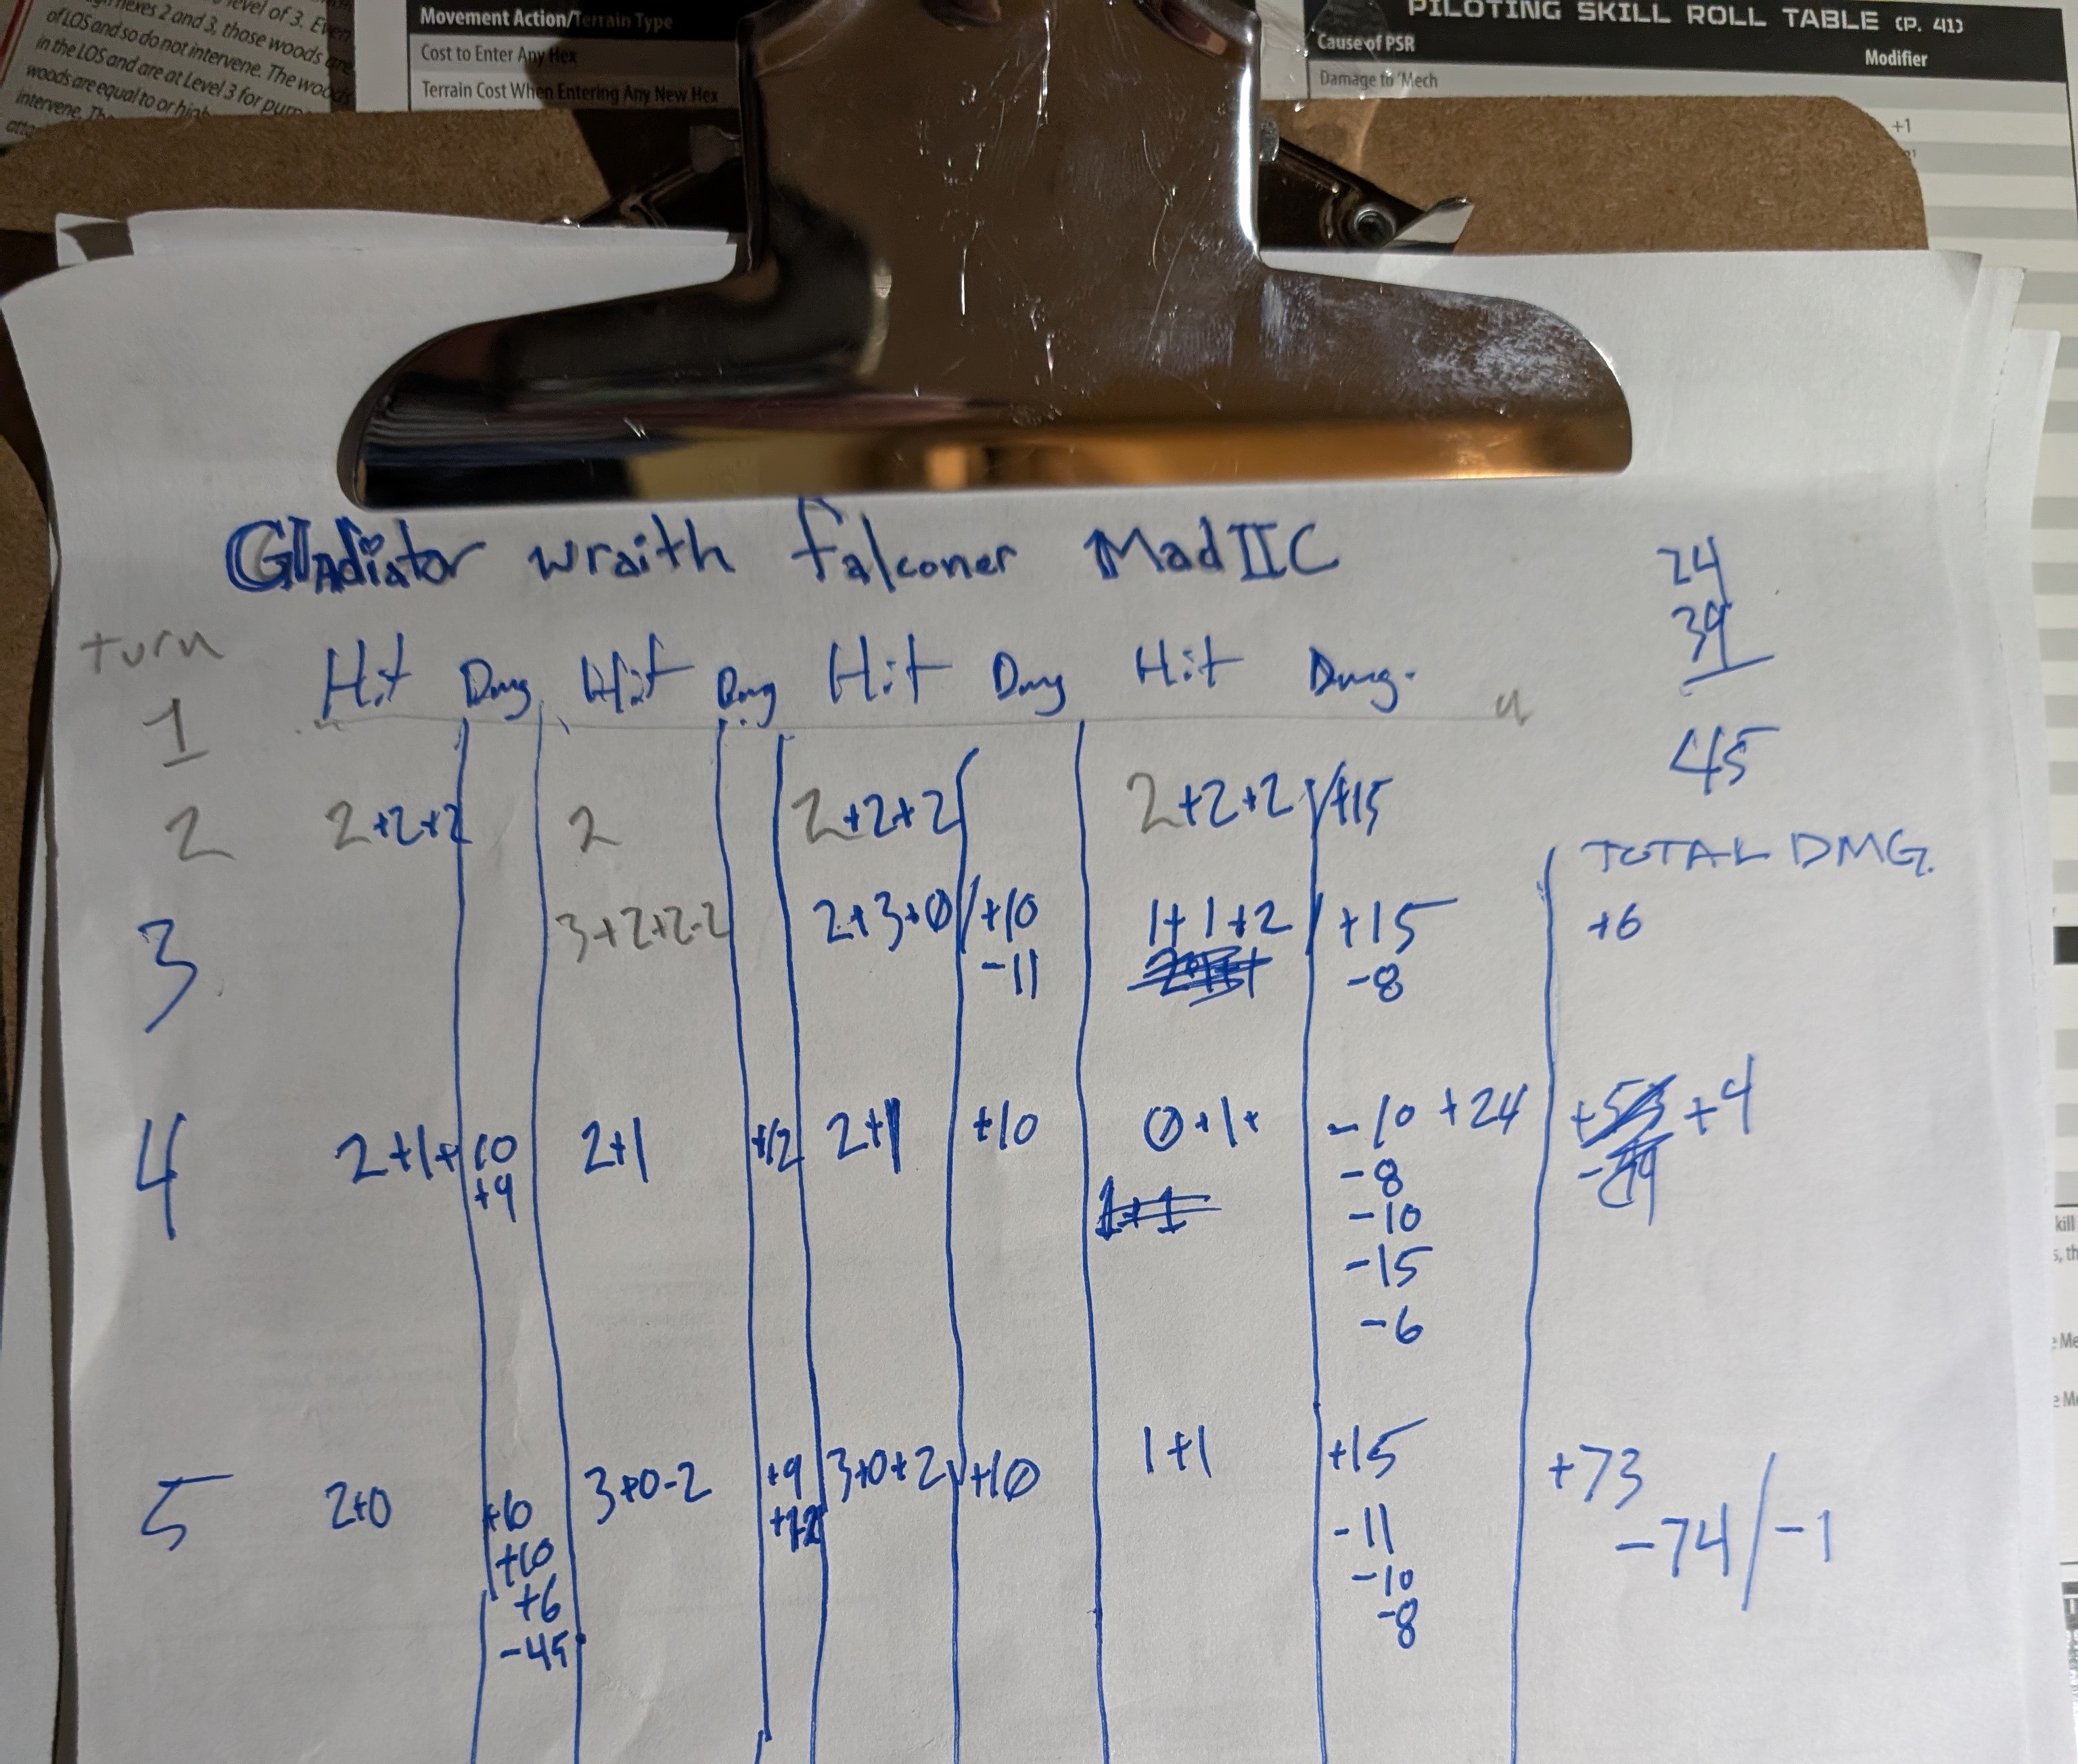 level of 3. Even
hexes 2 and 3, those woods are
of LOS and so do not intervene. The woods
in the LOS and are at Level 3 for
woods are equal to or
intervene.
Movement Action/Terrain Type
Cost to Enter Any Hex
Terrain Cost When Entering Any New Hex
PILOTING SKILL ROLL TABLE (P. 41)
Cause of PSR Modifier
Damage to 'Mech
+1
Gladiator wraith falconer Mad IIC
24
39
45
turn Hit Dmg Hit Dmg Hit Dmg Hit Dmg.
1
2 2+2+2 2 2+2+2 2+2+2 +15
TOTAL DMG.
3 3+2+2-2 2+3+0 +10 1+1+2 +15 +6
-11 -8
4 2+1+ 10 2+1 +12 2+1 +10 0+1+ -10 +24 +4
+9 -8
1+1 -10
-15
-6
5 2+0 +6 3+0-2 +9 3+0+2 +10 1+1 +15 +73
+10 +12 -11 -74/-1
+6 -10
-45 -8